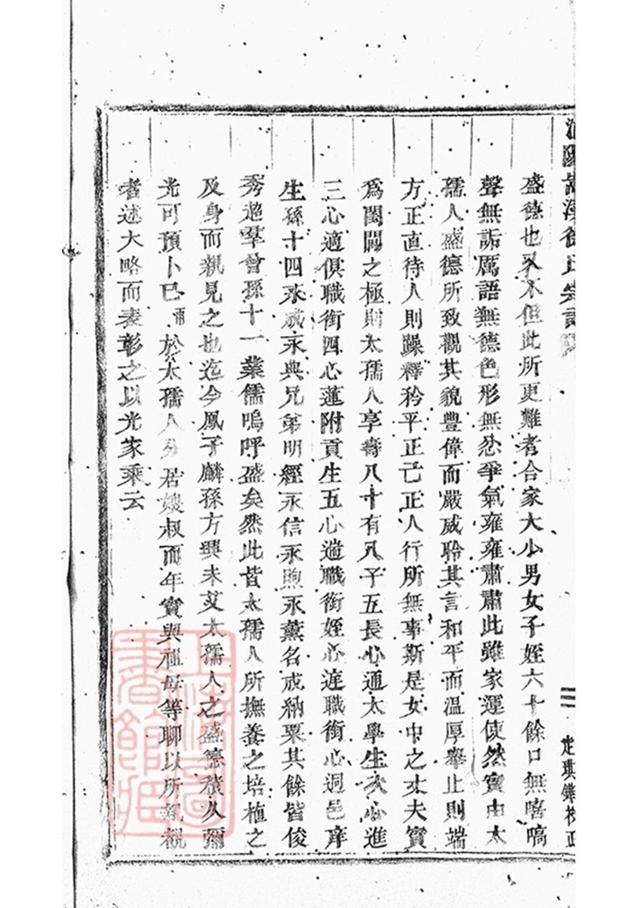 盛德也又不但此所更難者合家大小男女子姪六十餘口無嘻嗃
聲無詬厲語無德色形無忿爭氣雍雍肅肅此雖家運使然實由太
孺人盛德所致觀其貌豐偉而嚴威聆其言和平而溫厚舉止則端
方正直待人則躁釋矜平正己正人行所無事斯是女中之丈夫實
為閨閫之極則太孺人享壽八十有八子五長心通太學生次心進
三心適俱職銜四心蓮附貢生五心適職銜姪心達職銜心迥邑庠
生孫十四永成永與兄弟明經永信永煦永薰名成納粟其餘皆俊
秀超羣曾孫十一業儒嗚呼盛矣然此皆太孺人所撫養之培植之
及身而親見之也迄今鳳子麟孫方興未艾太孺人之盛德積久彌
光可預卜已甫於太孺人分居嫂叔而年實與祖母等聊以所親觀
者述大略而表彰之以光家乘云
徐氏宗譜
校正
上海圖書館藏